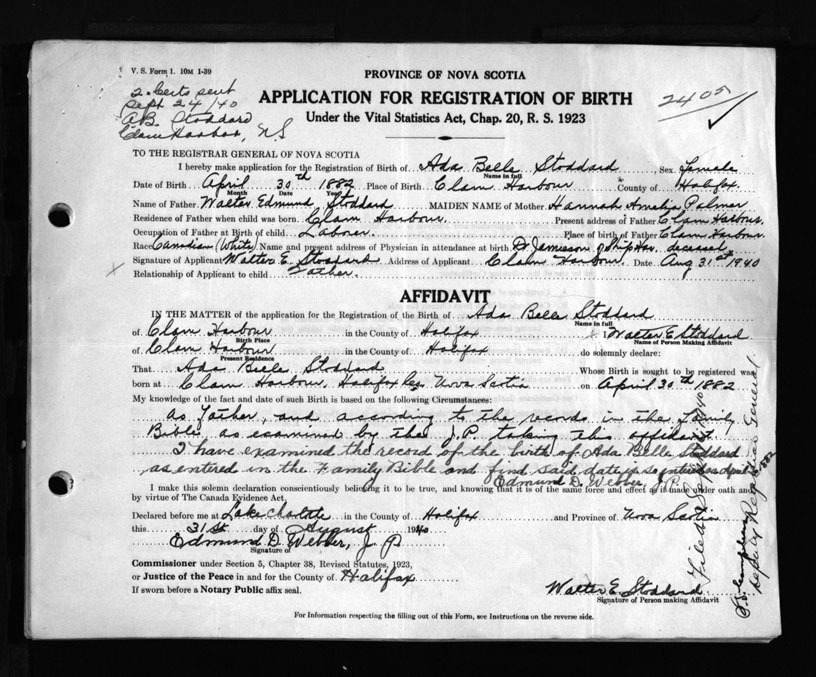 V. S. Form 1. 10M 1-39
2 certs sent
Sept 24/40
A.B. Stoddard
Clam Harbor, N S
PROVINCE OF NOVA SCOTIA
APPLICATION FOR REGISTRATION OF BIRTH
Under the Vital Statistics Act, Chap. 20, R. S. 1923
2405
TO THE REGISTRAR GENERAL OF NOVA SCOTIA
I hereby make application for the Registration of Birth of Ada Belle Stoddard, Sex Female
Name in full
Date of Birth April 30th 1882 Place of Birth Clam Harbour County of Halifax
Month Date Year
Name of Father Walter Edmund Stoddard MAIDEN NAME of Mother Hannah Amelia Palmer
Residence of Father when child was born Clam Harbour. Present address of Father Clam Harbour.
Occupation of Father at Birth of child Laborer. Place of birth of Father Clam Harbour.
Race Canadian (White) Name and present address of Physician in attendance at birth Dr Jamieson of Ship Har. deceased
Signature of Applicant Walter E. Stoddard Address of Applicant Clam Harbour. Date Aug 31st 1940
Relationship of Applicant to child Father.
AFFIDAVIT
IN THE MATTER of the application for the Registration of the Birth of Ada Belle Stoddard
Name in full
of Clam Harbour in the County of Halifax I Walter E Stoddard
Birth Place
Name of Person Making Affidavit
of Clam Harbour in the County of Halifax do solemnly declare:
Present Residence
That Ada Belle Stoddard Whose Birth is sought to be registered was
born at Clam Harbour, Halifax Co. Nova Scotia on April 30th 1882
My knowledge of the fact and date of such Birth is based on the following Circumstances:
as Father, and according to the records in the family
Bible, as examined by the J.P. taking this affidavit.
I have examined the record of the birth of Ada Belle Stoddard
as entered in the Family Bible and find said date is so entered April 1882
Edmund D. Webber, J.P.
I make this solemn declaration conscientiously believing it to be true, and knowing that it is of the same force and effect as if made under oath and
by virtue of The Canada Evidence Act.
Declared before me at Lake Charlotte in the County of Halifax and Province of Nova Scotia
this 31st day of August 1940
Edmund D. Webber, J. P.
Signature of
Commissioner under Section 5, Chapter 38, Revised Statutes, 1923,
or Justice of the Peace in and for the County of Halifax
If sworn before a Notary Public affix seal.
Walter E. Stoddard
Signature of Person making Affidavit
For Information respecting the filling out of this Form, see Instructions on the reverse side.
Filed Sept 1940
Deputy Registrar General